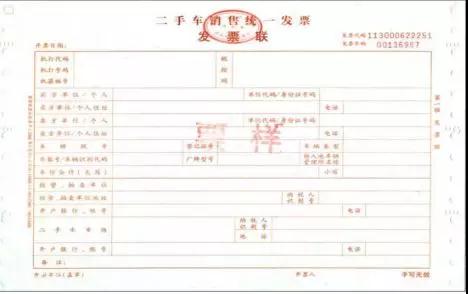 二手车销售统一发票
发票联
发票代码 113000622251
发票号码 00136987
开票日期：
机打代码
机打号码
机器编号
税控码
买方单位/个人 单位代码/身份证号码
买方单位/个人住址 电话
卖方单位/个人 单位代码/身份证号码
卖方单位/个人住址 电话
票样
车牌照号 登记证号 车辆类型
车架号/车辆识别代码 厂牌型号 转入地车辆管理所名称
车价合计（大写） 小写
经营、拍卖单位
经营、拍卖单位地址 纳税人识别号
开户银行、账号 电话
二手车市场 纳税人识别号
地址
开户银行、账号 电话
备注：
开票单位（盖章） 开票人 手写无效
第一联 发票联